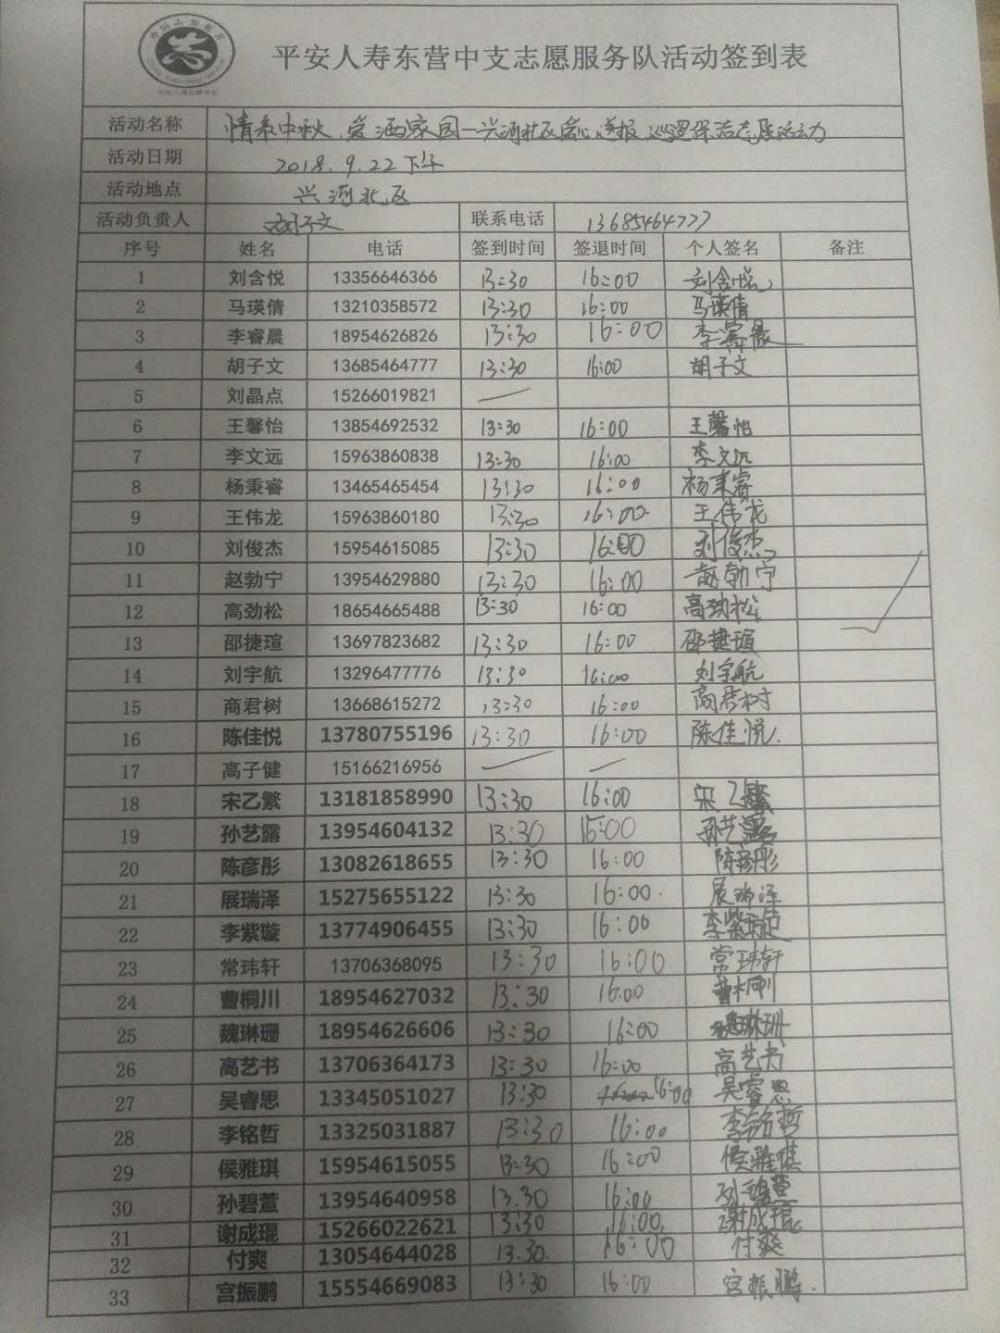 平安人寿东营中支志愿服务队活动签到表
活动名称 情系中秋,爱洒家园—兴河社区爱心巡逻保洁志愿活动
活动日期 2018.9.22下午
活动地点 兴河北区
活动负责人 胡子文 联系电话 13685464777
序号 姓名 电话 签到时间 签退时间 个人签名 备注
1 刘含悦 13356646366 13:30 16:00 刘含悦
2 马瑛倩 13210358572 13:30 16:00 马瑛倩
3 李睿晨 18954626826 13:30 16:00 李睿晨
4 胡子文 13685464777 13:30 16:00 胡子文
5 刘晶点 15266019821 —
6 王馨怡 13854692532 13:30 16:00 王馨怡
7 李文远 15963860838 13:30 16:00 李文远
8 杨秉睿 13465465454 13:30 16:00 杨秉睿
9 王伟龙 15963860180 13:30 16:00 王伟龙
10 刘俊杰 15954615085 13:30 16:00 刘俊杰
11 赵勃宁 13954629880 13:30 16:00 赵勃宁
12 高劲松 18654665488 13:30 16:00 高劲松
13 邵捷瑄 13697823682 13:30 16:00 邵捷瑄
14 刘宇航 13296477776 13:30 16:00 刘宇航
15 商君树 13668615272 13:30 16:00 商君树
16 陈佳悦 13780755196 13:30 16:00 陈佳悦.
17 高子健 15166216956 — —
18 宋乙繁 13181858990 13:30 16:00 宋乙繁
19 孙艺露 13954604132 13:30 16:00 孙艺露
20 陈彦彤 13082618655 13:30 16:00 陈彦彤
21 展瑞泽 15275655122 13:30 16:00. 展瑞泽
22 李紫璇 13774906455 13:30 16:00 李紫璇
23 常玮轩 13706368095 13:30 16:00 常玮轩
24 曹桐川 18954627032 13:30 16:00 曹桐川
25 魏琳珊 18954626606 13:30 16:00 魏琳珊
26 高艺书 13706364173 13:30 16:00 高艺书
27 吴睿思 13345051027 13:30 16:00 吴睿思
28 李铭哲 13325031887 13:30 16:00 李铭哲
29 侯雅琪 15954615055 13:30 16:00 侯雅琪
30 孙碧萱 13954640958 13.30 16:00 孙碧萱
31 谢成琨 15266022621 13:30 16:00. 谢成琨
32 付爽 13054644028 13.30. 16:00 付爽
33 宫振鹏 15554669083 13:30 16:00 宫振鹏.